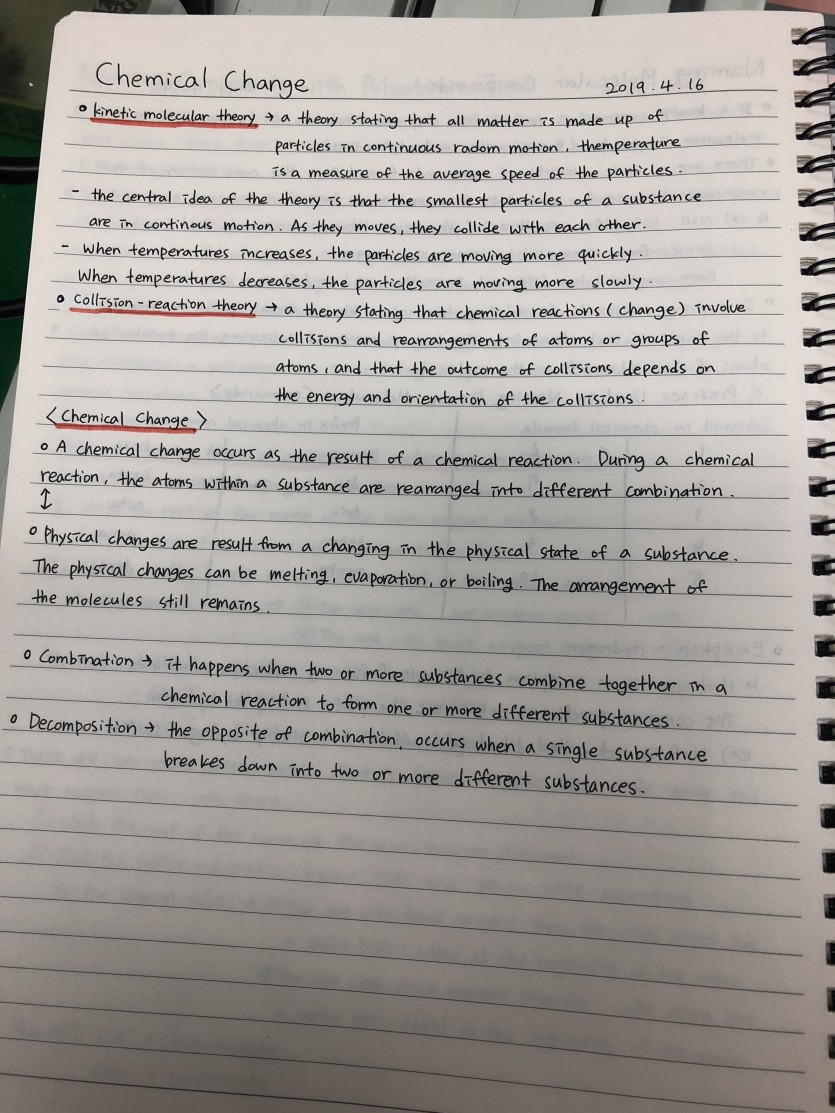 Chemical Change 2019.4.16
• kinetic molecular theory → a theory stating that all matter is made up of
particles in continuous radom motion, themperature
is a measure of the average speed of the particles.
- the central idea of the theory is that the smallest particles of a substance
are in continous motion. As they moves, they collide with each other.
- When temperatures increases, the particles are moving more quickly.
When temperatures decreases, the particles are moving more slowly.
• Collision-reaction theory → a theory stating that chemical reactions (change) involve
collisions and rearrangements of atoms or groups of
atoms, and that the outcome of collisions depends on
the energy and orientation of the collisions.
<Chemical Change>
• A chemical change occurs as the result of a chemical reaction. During a chemical
reaction, the atoms within a substance are rearranged into different combination.
↕
• Physical changes are result from a changing in the physical state of a substance.
The physical changes can be melting, evaporation, or boiling. The arrangement of
the molecules still remains.
• Combination → it happens when two or more substances combine together in a
chemical reaction to form one or more different substances.
• Decomposition → the opposite of combination, occurs when a single substance
breakes down into two or more different substances.